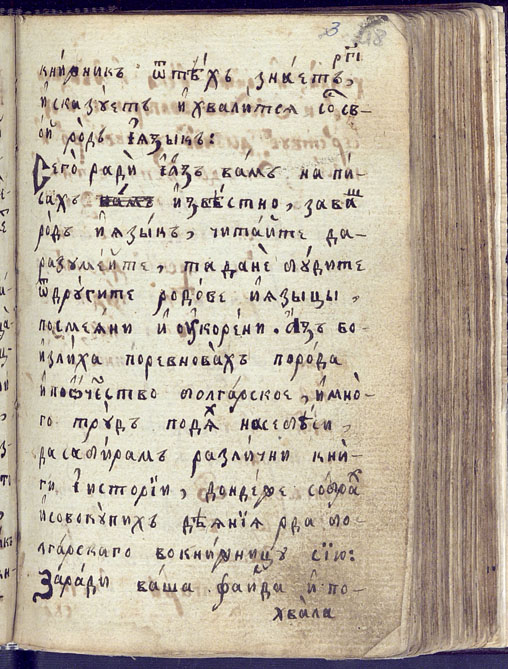 3 18
рг҃і
книжникъ ѿтѣхъ знаетъ,
и сказуетъ и хвалится со св-
ой родъ і языкъ:
Сего ради і азъ вамъ напи-
сахъ вамъ извѣстно, за ваш
родъ и языкъ, читайте да-
разумейте, та да не будите
ѿ другите родове и языцы,
посмеяни и оукорени. Азъ во-
излиха поревновахъ по рода
и по ѿчество болгарское, и мно-
го трудъ подяхъ на себѣси,
да сабирамъ различни кни-
ги і исторїи, дондеже собрах
и совокупихъ дѣянїя рода бо-
лгарскаго во книжницу сїю:
За ради ваша файда и по-
хвала